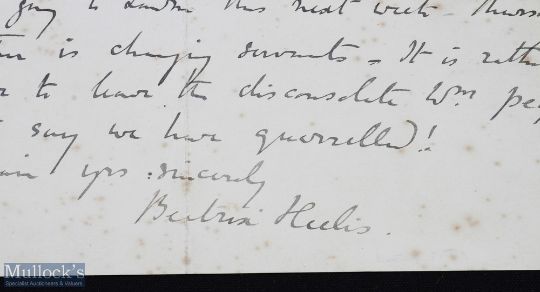 going to London this next week - Thurs
is changing servants - It is rath
to leave the disconsolate Wm peo
say we have quarrelled!
yrs sincerely
Beatrix Heelis.
Mullock's
Specialist Auctioneers & Valuers